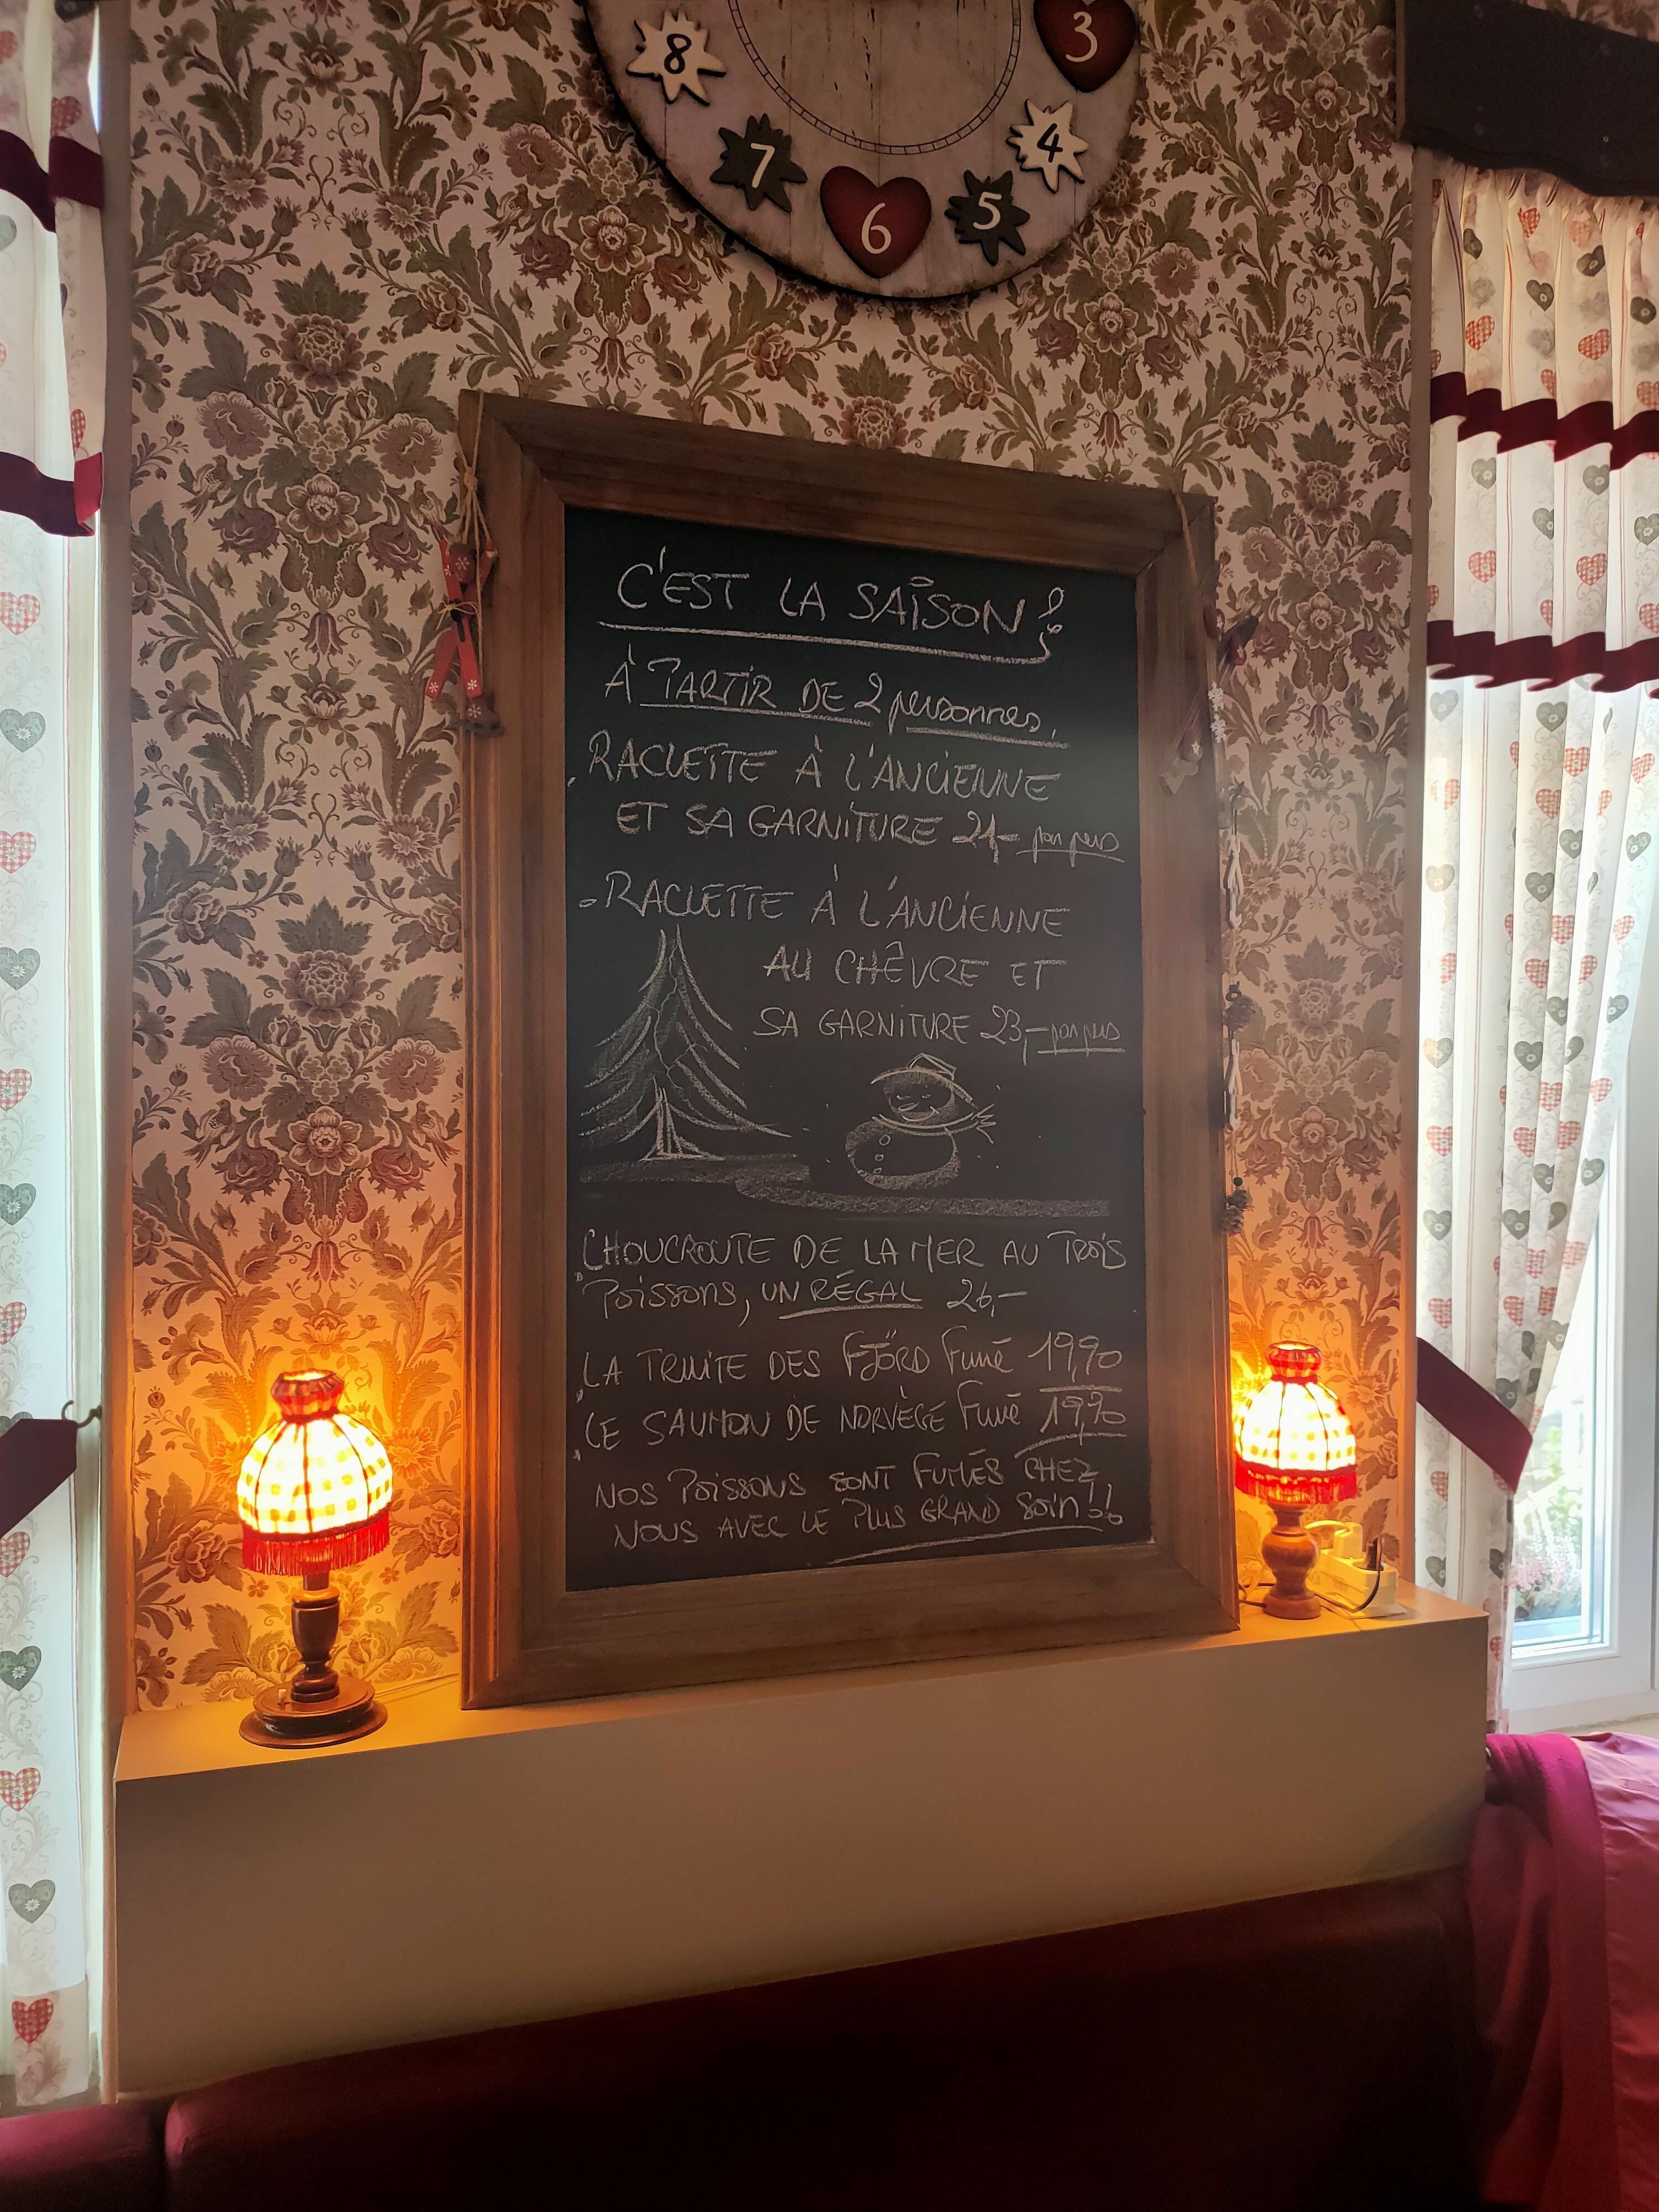 8
3
7
4
6
5
C'EST LA SAISON!
À PARTIR DE 2 personnes,
RACLETTE À L'ANCIENNE
ET SA GARNITURE 21,- par pers
- RACLETTE À L'ANCIENNE
AU CHÊVRE ET
SA GARNITURE 23,- par pers
CHOUCROUTE DE LA MER AU TROIS
POISSONS, UN RÉGAL 26,-
LA TRUITE DES FJORD Fumé 19,90
LE SAUMON DE NORVÈGE Fumé 19,90
NOS POISSONS SONT FUMÉS CHEZ
NOUS AVEC LE PLUS GRAND SOIN!!